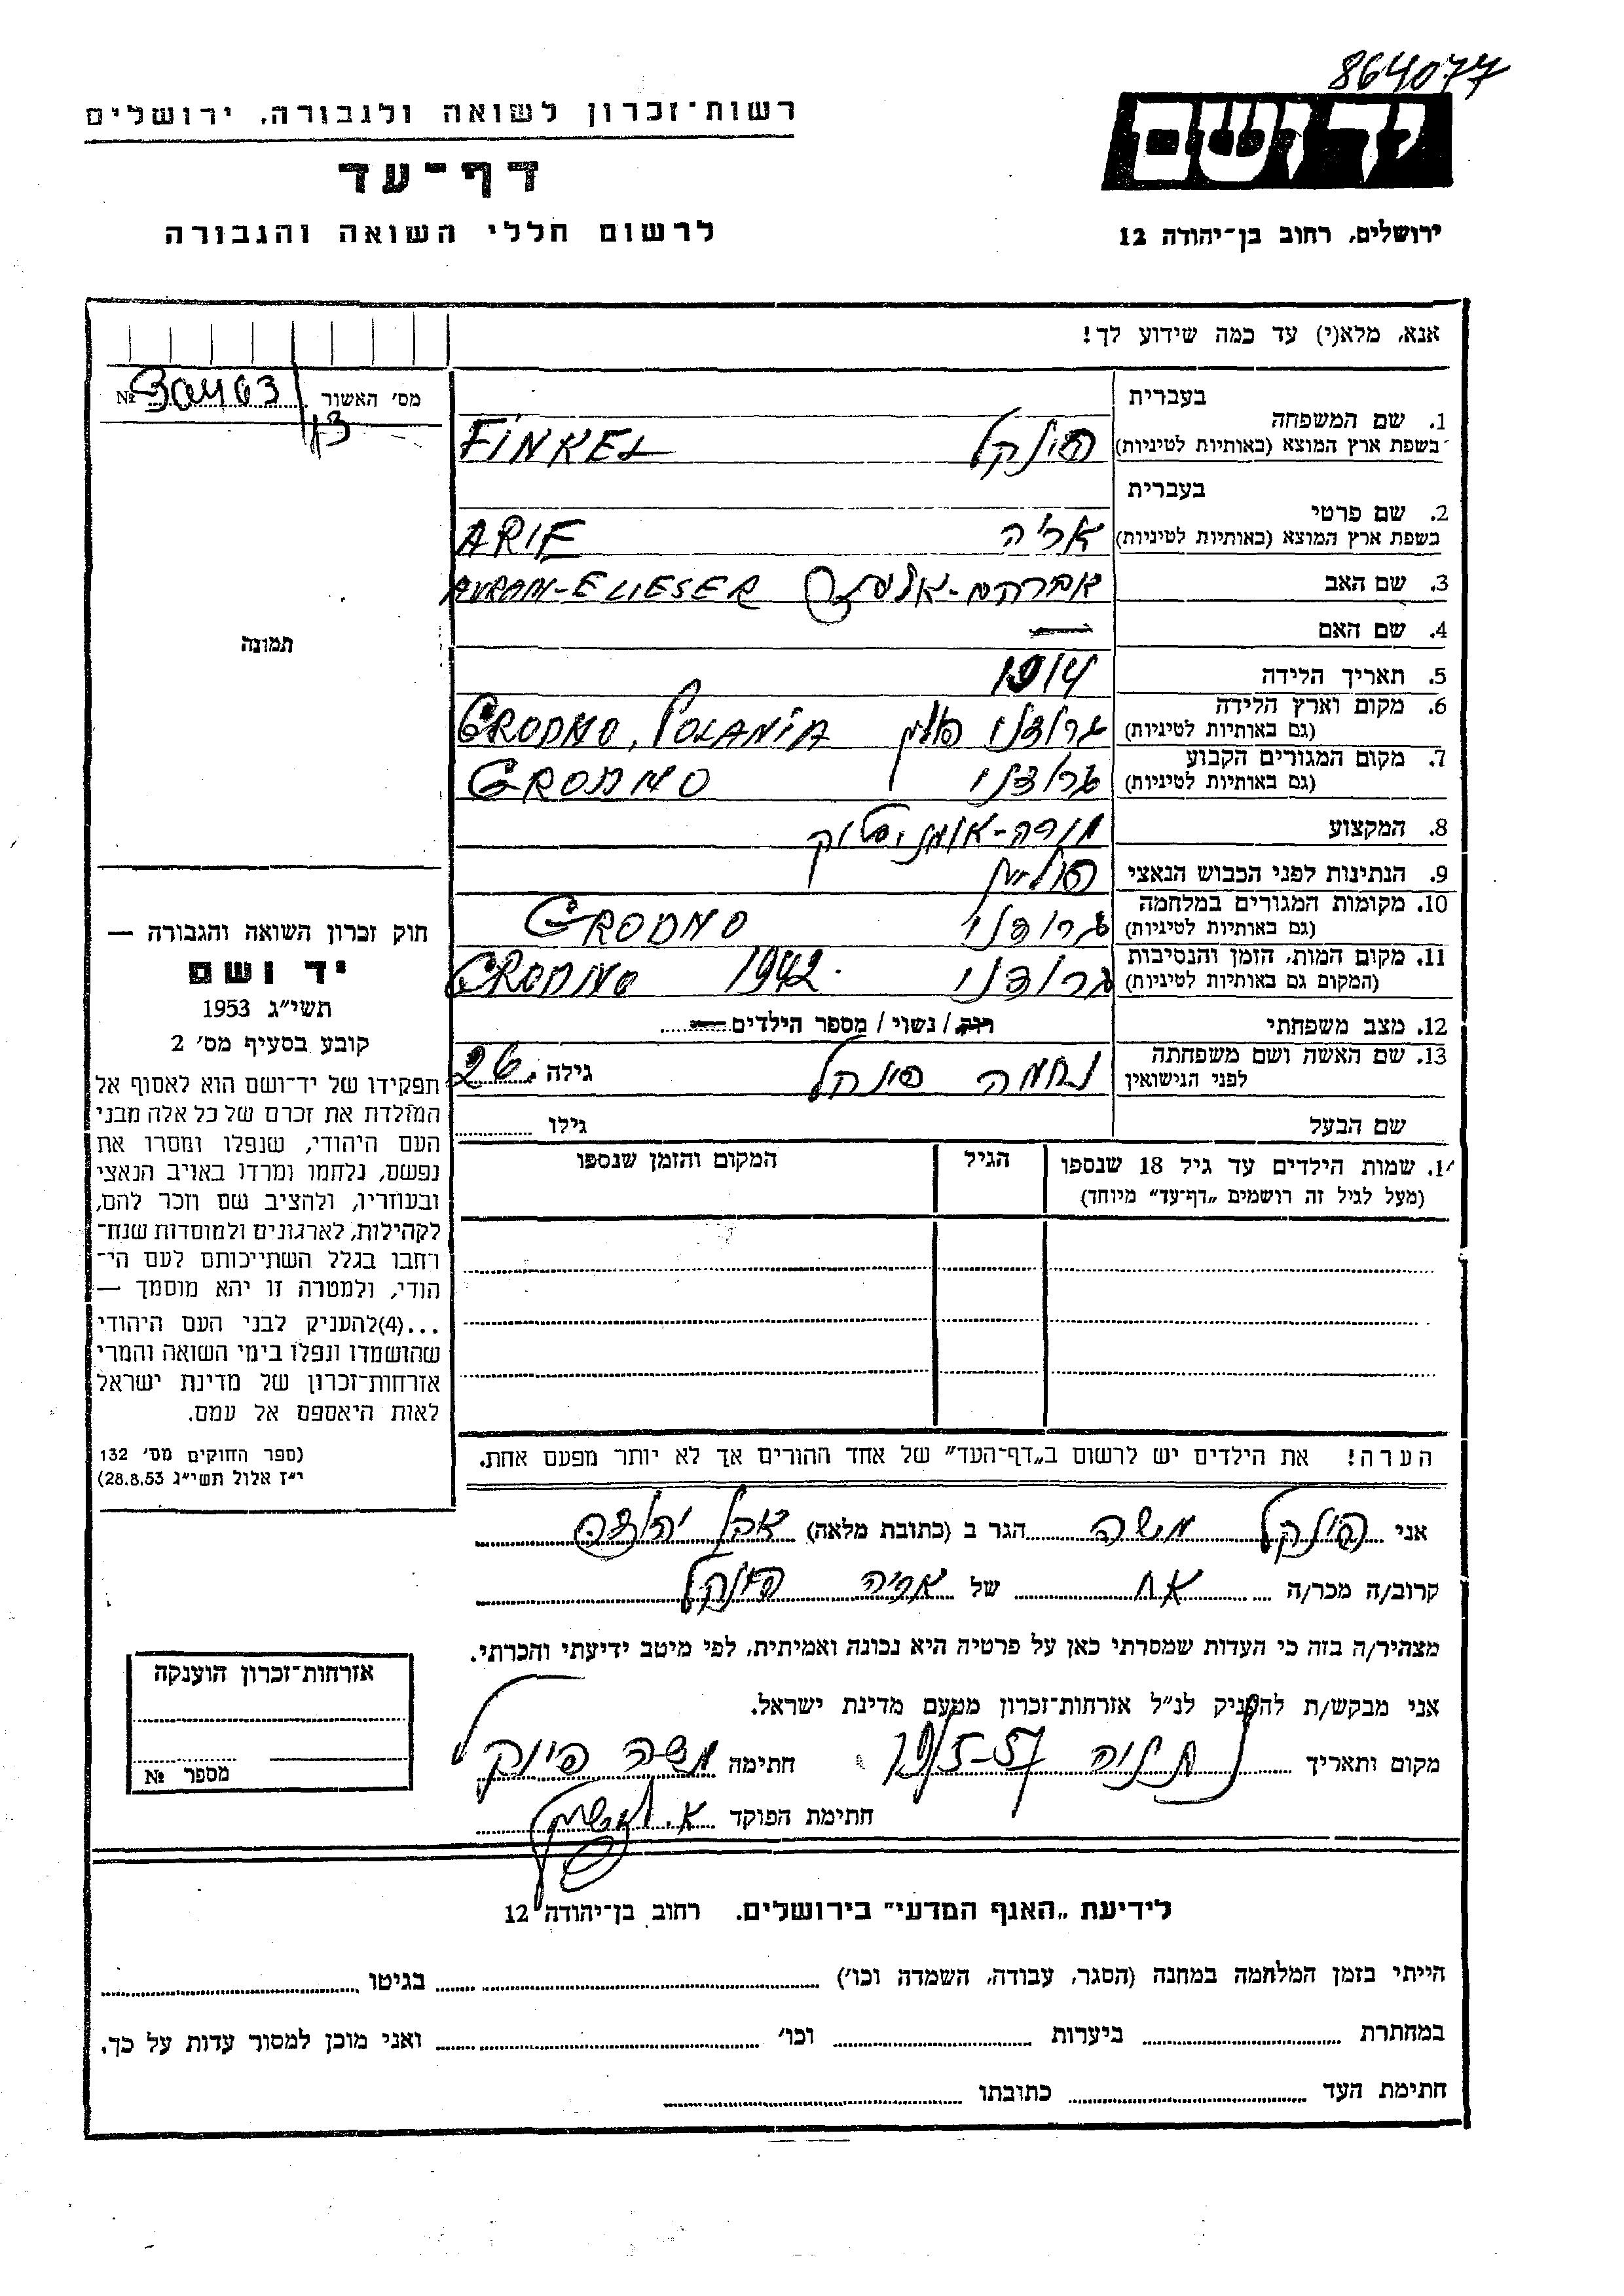 864077
יד ושם
ירושלים, רחוב בן־יהודה 12
רשות־זכרון לשואה ולגבורה, ירושלים
דף־עד
לרשום חללי השואה והגבורה
אנא, מלא(י) עד כמה שידוע לך!
מס׳ האשור № 304103
113
בעברית
1. שם המשפחה
בשפת ארץ המוצא (באותיות לטיניות) פינקל FINKEL
בעברית
2. שם פרטי
בשפת ארץ המוצא (באותיות לטיניות) אריה ARIE
3. שם האב אברהם-אליעזר AVROM-ELIESER
4. שם האם —
5. תאריך הלידה 1914
6. מקום וארץ הלידה
(גם באותיות לטיניות) גרודנו פולין GRODNO, POLANIA
7. מקום המגורים הקבוע
(גם באותיות לטיניות) גרודנו GRODNO
8. המקצוע מורה-
9. הנתינות לפני הכבוש הנאצי פולין
10. מקומות המגורים במלחמה
(גם באותיות לטיניות) גרודנו GRODNO
11. מקום המות, הזמן והנסיבות
(המקום גם באותיות לטיניות) גרודנו 1942. GRODNO
12. מצב משפחתי רוק / נשוי / מספר הילדים —
13. שם האשה ושם משפחתה
לפני הנישואין נחמה פינקל גילה 26
שם הבעל גילו
14. שמות הילדים עד גיל 18 שנספו הגיל המקום והזמן שנספו
(מעל לגיל זה רושמים „דף־עד״ מיוחד)
הערה! את הילדים יש לרשום ב„דף־העד״ של אחד ההורים אך לא יותר מפעם אחת.
תמונה
חוק זכרון השואה והגבורה —
יד ושם
תשי״ג 1953
קובע בסעיף מס׳ 2
תפקידו של יד־ושם הוא לאסוף אל
המולדת את זכרם של כל אלה מבני
העם היהודי, שנפלו ומסרו את
נפשם, נלחמו ומרדו באויב הנאצי
ובעוזריו, ולהציב שם וזכר להם,
לקהילות, לארגונים ולמוסדות שנח־
רחבו בגלל השתייכותם לעם הי־
הודי, ולמטרה זו יהא מוסמך —
...(4)להעניק לבני העם היהודי
שהושמדו ונפלו בימי השואה והמרי
אזרחות־זכרון של מדינת ישראל
לאות היאספם אל עמם.
(ספר החוקים מס׳ 132
י״ז אלול תשי״ג 28.8.53)
אני פינקל משה הגר ב (כתובת מלאה) אבן יהודה
קרוב/ה מכר/ה אח של אריה פינקל
מצהיר/ה בזה כי העדות שמסרתי כאן על פרטיה היא נכונה ואמיתית, לפי מיטב ידיעתי והכרתי.
אני מבקש/ת להעניק לנ״ל אזרחות־זכרון מטעם מדינת ישראל.
מקום ותאריך נתניה 20/5-57 חתימה משה פינקל
חתימת הפוקד א.
אזרחות־זכרון הוענקה
מספר №
לידיעת „האגף המדעי״ בירושלים. רחוב בן־יהודה 12
הייתי בזמן המלחמה במחנה (הסגר, עבודה, השמדה וכו׳) בגיטו
במחתרת ביערות וכו׳ ואני מוכן למסור עדות על כך.
חתימת העד כתובתו